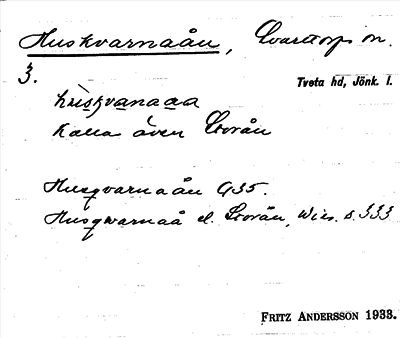 Huskvarnaån, Svarttorps sn.
3.
Tveta hd, Jönk. l.
hùskvanaaa
Kallas även Storån
Husqvarna ån G35.
Husqwarnaå el. Storån, Wies. s. 333
FRITZ ANDERSSON 1933.